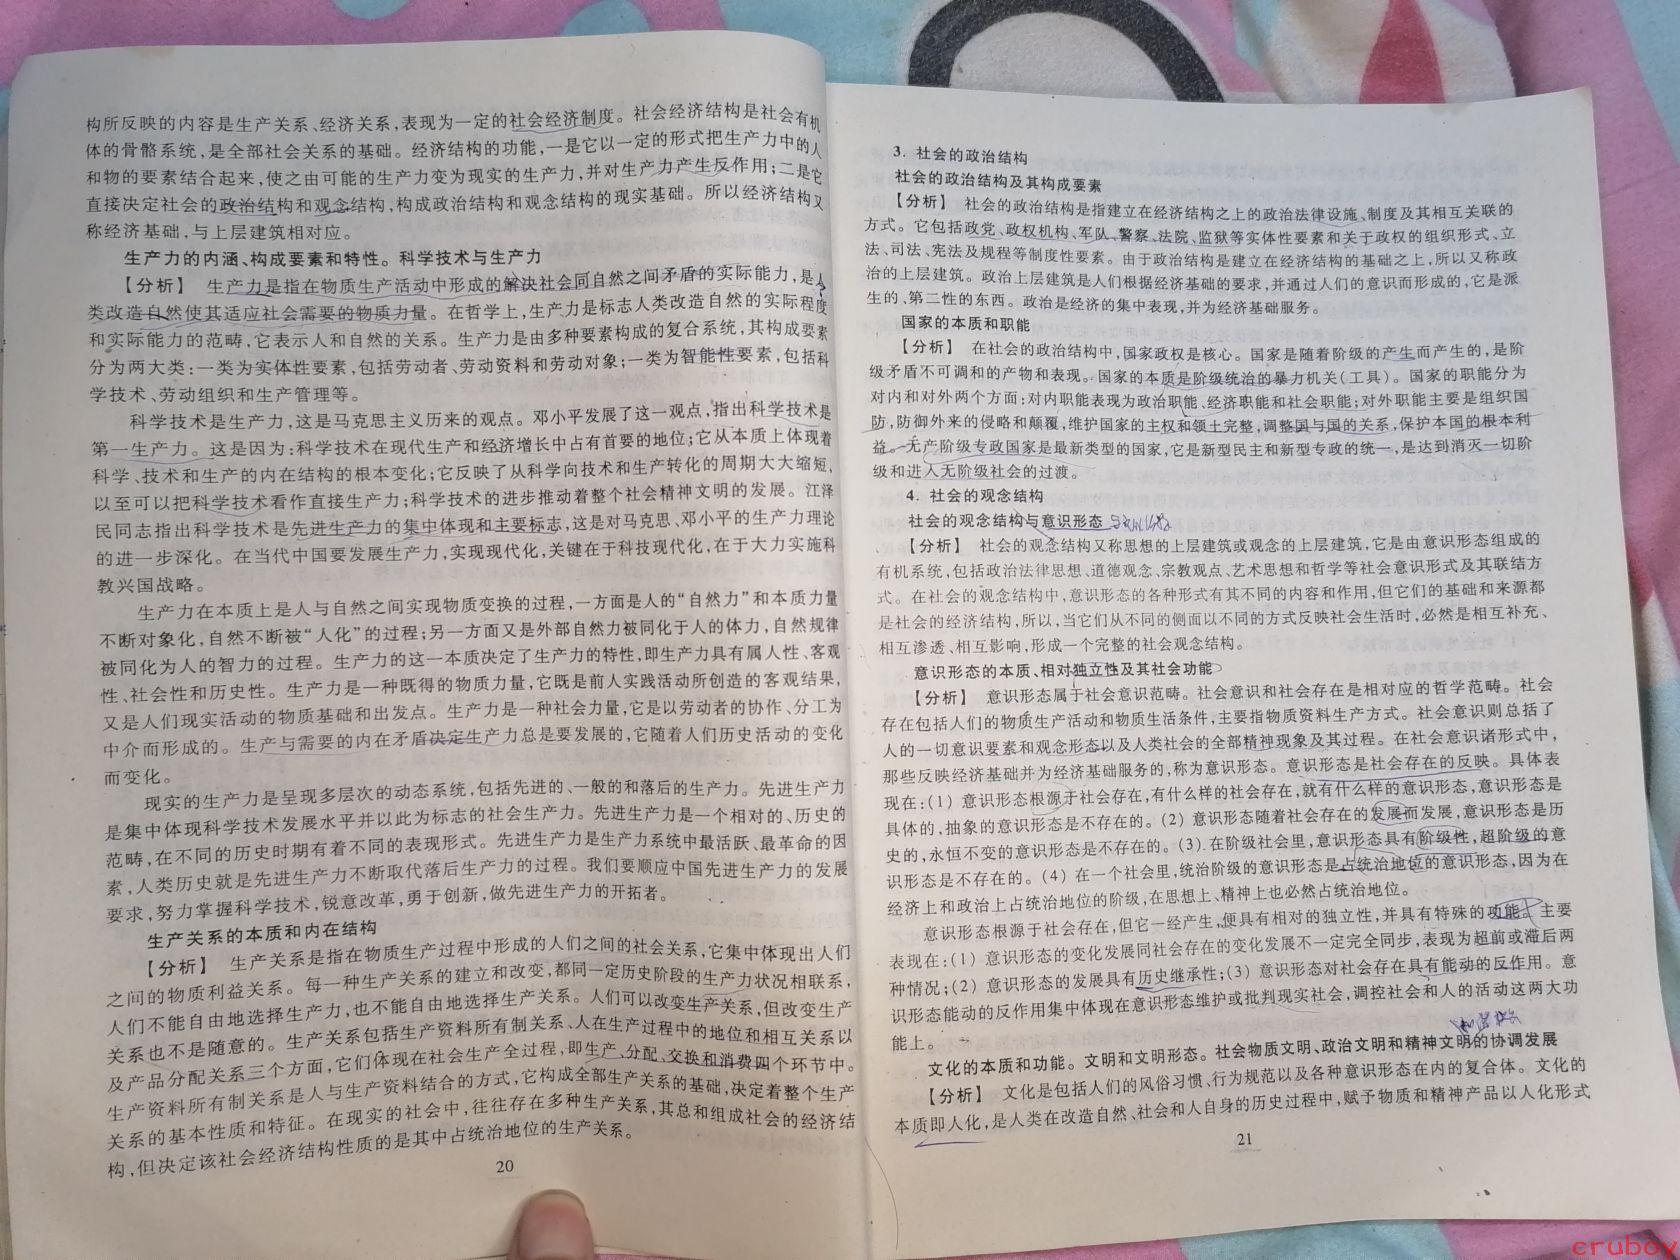 构所反映的内容是生产关系、经济关系,表现为一定的社会经济制度。社会经济结构是社会有机
体的骨骼系统,是全部社会关系的基础。经济结构的功能,一是它以一定的形式把生产力中的人
和物的要素结合起来,使之由可能的生产力变为现实的生产力,并对生产力产生反作用;二是它
直接决定社会的政治结构和观念结构,构成政治结构和观念结构的现实基础。所以经济结构又
称经济基础,与上层建筑相对应。
生产力的内涵、构成要素和特性。科学技术与生产力
【分析】 生产力是指在物质生产活动中形成的解决社会同自然之间矛盾的实际能力,是人
类改造自然使其适应社会需要的物质力量。在哲学上,生产力是标志人类改造自然的实际程度
和实际能力的范畴,它表示人和自然的关系。生产力是由多种要素构成的复合系统,其构成要素
分为两大类:一类为实体性要素,包括劳动者、劳动资料和劳动对象;一类为智能性要素,包括科
学技术、劳动组织和生产管理等。
科学技术是生产力,这是马克思主义历来的观点。邓小平发展了这一观点,指出科学技术是
第一生产力。这是因为:科学技术在现代生产和经济增长中占有首要的地位;它从本质上体现着
科学、技术和生产的内在结构的根本变化;它反映了从科学向技术和生产转化的周期大大缩短,
以至可以把科学技术看作直接生产力;科学技术的进步推动着整个社会精神文明的发展。江泽
民同志指出科学技术是先进生产力的集中体现和主要标志,这是对马克思、邓小平的生产力理论
的进一步深化。在当代中国要发展生产力,实现现代化,关键在于科技现代化,在于大力实施科
教兴国战略。
生产力在本质上是人与自然之间实现物质变换的过程,一方面是人的“自然力”和本质力量
不断对象化,自然不断被“人化”的过程;另一方面又是外部自然力被同化于人的体力,自然规律
被同化为人的智力的过程。生产力的这一本质决定了生产力的特性,即生产力具有属人性、客观
性、社会性和历史性。生产力是一种既得的物质力量,它既是前人实践活动所创造的客观结果,
又是人们现实活动的物质基础和出发点。生产力是一种社会力量,它是以劳动者的协作、分工为
中介而形成的。生产与需要的内在矛盾决定生产力总是要发展的,它随着人们历史活动的变化
而变化。
现实的生产力是呈现多层次的动态系统,包括先进的、一般的和落后的生产力。先进生产力
是集中体现科学技术发展水平并以此为标志的社会生产力。先进生产力是一个相对的、历史的
范畴,在不同的历史时期有着不同的表现形式。先进生产力是生产力系统中最活跃、最革命的因
素,人类历史就是先进生产力不断取代落后生产力的过程。我们要顺应中国先进生产力的发展
要求,努力掌握科学技术,锐意改革,勇于创新,做先进生产力的开拓者。
生产关系的本质和内在结构
【分析】 生产关系是指在物质生产过程中形成的人们之间的社会关系,它集中体现出人们
之间的物质利益关系。每一种生产关系的建立和改变,都同一定历史阶段的生产力状况相联系,
人们不能自由地选择生产力,也不能自由地选择生产关系。人们可以改变生产关系,但改变生产
关系也不是随意的。生产关系包括生产资料所有制关系、人在生产过程中的地位和相互关系以
及产品分配关系三个方面,它们体现在社会生产全过程,即生产、分配、交换和消费四个环节中。
生产资料所有制关系是人与生产资料结合的方式,它构成全部生产关系的基础,决定着整个生产
关系的基本性质和特征。在现实的社会中,往往存在多种生产关系,其总和组成社会的经济结
构,但决定该社会经济结构性质的是其中占统治地位的生产关系。
20
3. 社会的政治结构
社会的政治结构及其构成要素
【分析】 社会的政治结构是指建立在经济结构之上的政治法律设施、制度及其相互关联的
方式。它包括政党、政权机构、军队、警察、法院、监狱等实体性要素和关于政权的组织形式、立
法、司法、宪法及规程等制度性要素。由于政治结构是建立在经济结构的基础之上,所以又称政
治的上层建筑。政治上层建筑是人们根据经济基础的要求,并通过人们的意识而形成的,它是派
生的、第二性的东西。政治是经济的集中表现,并为经济基础服务。
国家的本质和职能
【分析】 在社会的政治结构中,国家政权是核心。国家是随着阶级的产生而产生的,是阶
级矛盾不可调和的产物和表现。国家的本质是阶级统治的暴力机关(工具)。国家的职能分为
对内和对外两个方面:对内职能表现为政治职能、经济职能和社会职能;对外职能主要是组织国
防,防御外来的侵略和颠覆,维护国家的主权和领土完整,调整国与国的关系,保护本国的根本利
益。无产阶级专政国家是最新类型的国家,它是新型民主和新型专政的统一,是达到消灭一切阶
级和进入无阶级社会的过渡。
4. 社会的观念结构
社会的观念结构与意识形态
【分析】 社会的观念结构又称思想的上层建筑或观念的上层建筑,它是由意识形态组成的
有机系统,包括政治法律思想、道德观念、宗教观点、艺术思想和哲学等社会意识形式及其联结方
式。在社会的观念结构中,意识形态的各种形式有其不同的内容和作用,但它们的基础和来源都
是社会的经济结构,所以,当它们从不同的侧面以不同的方式反映社会生活时,必然是相互补充、
相互渗透、相互影响,形成一个完整的社会观念结构。
意识形态的本质、相对独立性及其社会功能
【分析】 意识形态属于社会意识范畴。社会意识和社会存在是相对应的哲学范畴。社会
存在包括人们的物质生产活动和物质生活条件,主要指物质资料生产方式。社会意识则总括了
人的一切意识要素和观念形态以及人类社会的全部精神现象及其过程。在社会意识诸形式中,
那些反映经济基础并为经济基础服务的,称为意识形态。意识形态是社会存在的反映。具体表
现在:(1) 意识形态根源于社会存在,有什么样的社会存在,就有什么样的意识形态,意识形态是
具体的,抽象的意识形态是不存在的。(2) 意识形态随着社会存在的发展而发展,意识形态是历
史的,永恒不变的意识形态是不存在的。(3) 在阶级社会里,意识形态具有阶级性,超阶级的意
识形态是不存在的。(4) 在一个社会里,统治阶级的意识形态是占统治地位的意识形态,因为在
经济上和政治上占统治地位的阶级,在思想上、精神上也必然占统治地位。
意识形态根源于社会存在,但它一经产生,便具有相对的独立性,并具有特殊的功能。主要
表现在:(1) 意识形态的变化发展同社会存在的变化发展不一定完全同步,表现为超前或滞后两
种情况;(2) 意识形态的发展具有历史继承性;(3) 意识形态对社会存在具有能动的反作用。意
识形态能动的反作用集中体现在意识形态维护或批判现实社会,调控社会和人的活动这两大功
能上。
文化的本质和功能。文明和文明形态。社会物质文明、政治文明和精神文明的协调发展
【分析】 文化是包括人们的风俗习惯、行为规范以及各种意识形态在内的复合体。文化的
本质即人化,是人类在改造自然、社会和人自身的历史过程中,赋予物质和精神产品以人化形式
21
cruboy